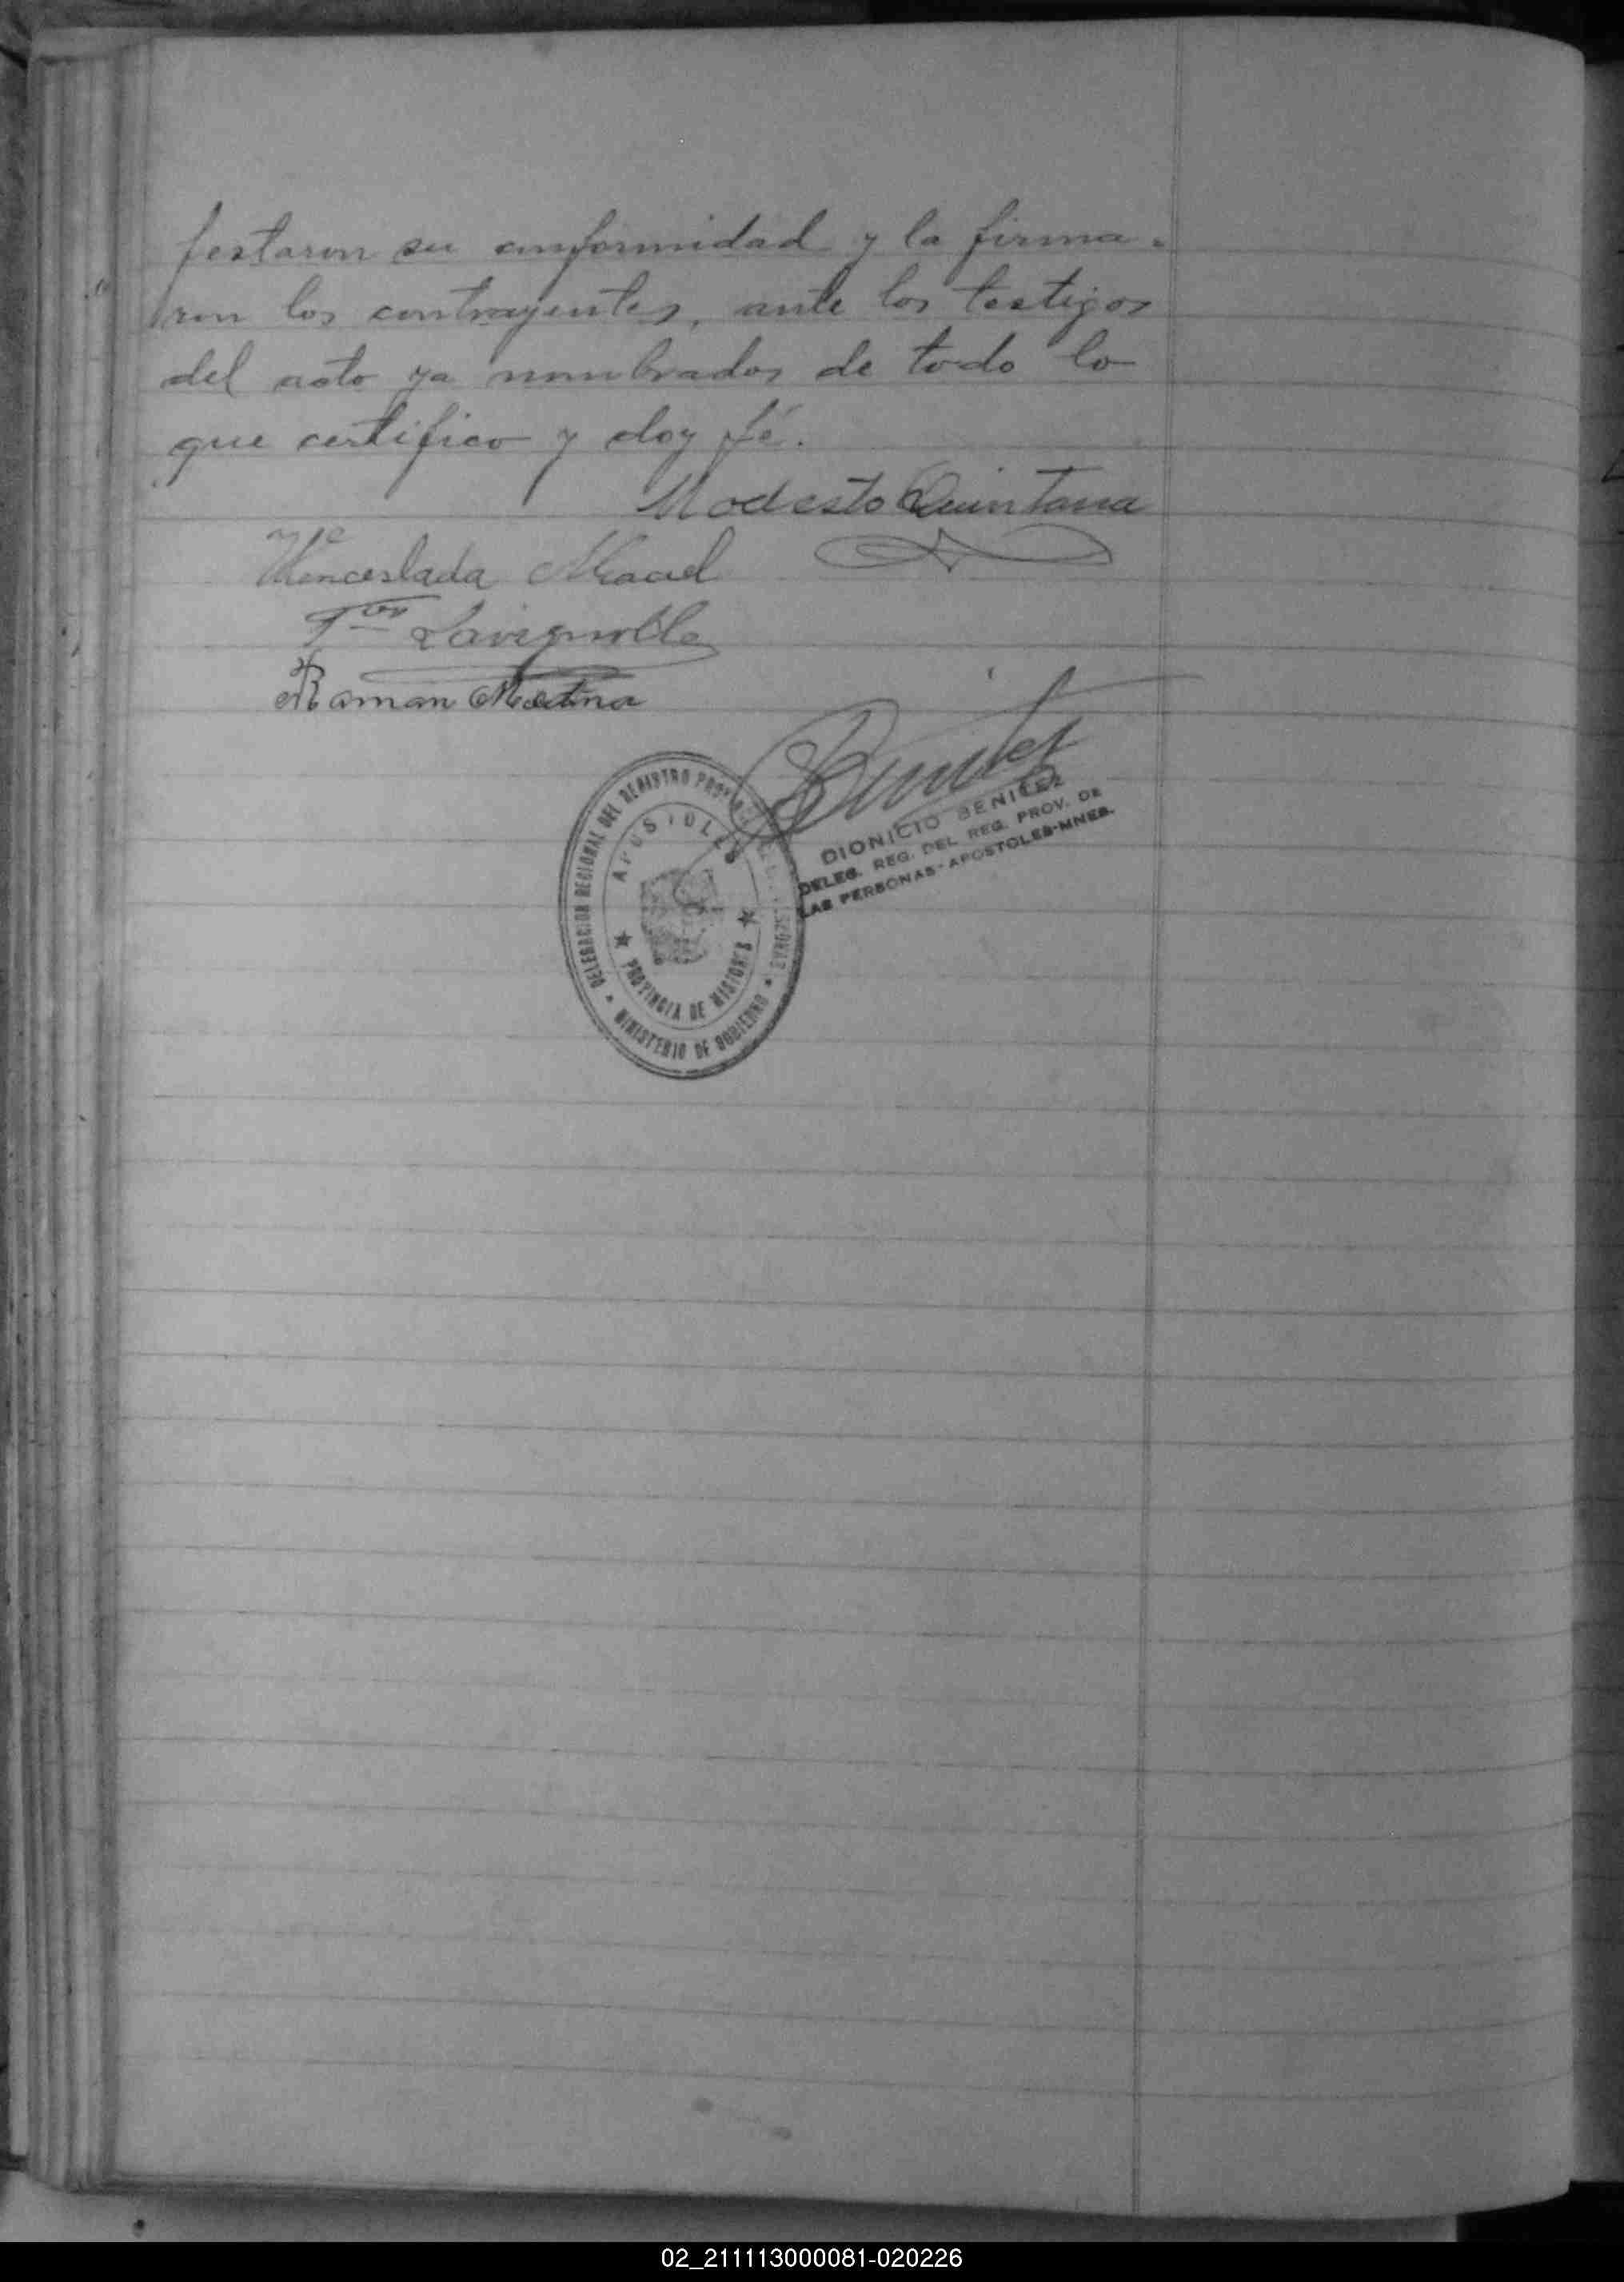 festaron su conformidad y la firma-
ron los contrayentes, ante los testigos
del acto ya nombrados de todo lo
que certifico y doy fé.
Modesto Quintana
Wenceslada Maciel
Lavignolle
Ramon Medina
Benitez
DIONICIO BENITEZ
DELEG. REG. DEL REG. PROV. DE
LAS PERSONAS-APOSTOLES-MNES.
DELEGACION REGIONAL DEL REGISTRO PROVINCIAL DE LAS PERSONAS
APOSTOLES
PROVINCIA DE MISIONES
MINISTERIO DE GOBIERNO
02_211113000081-020226